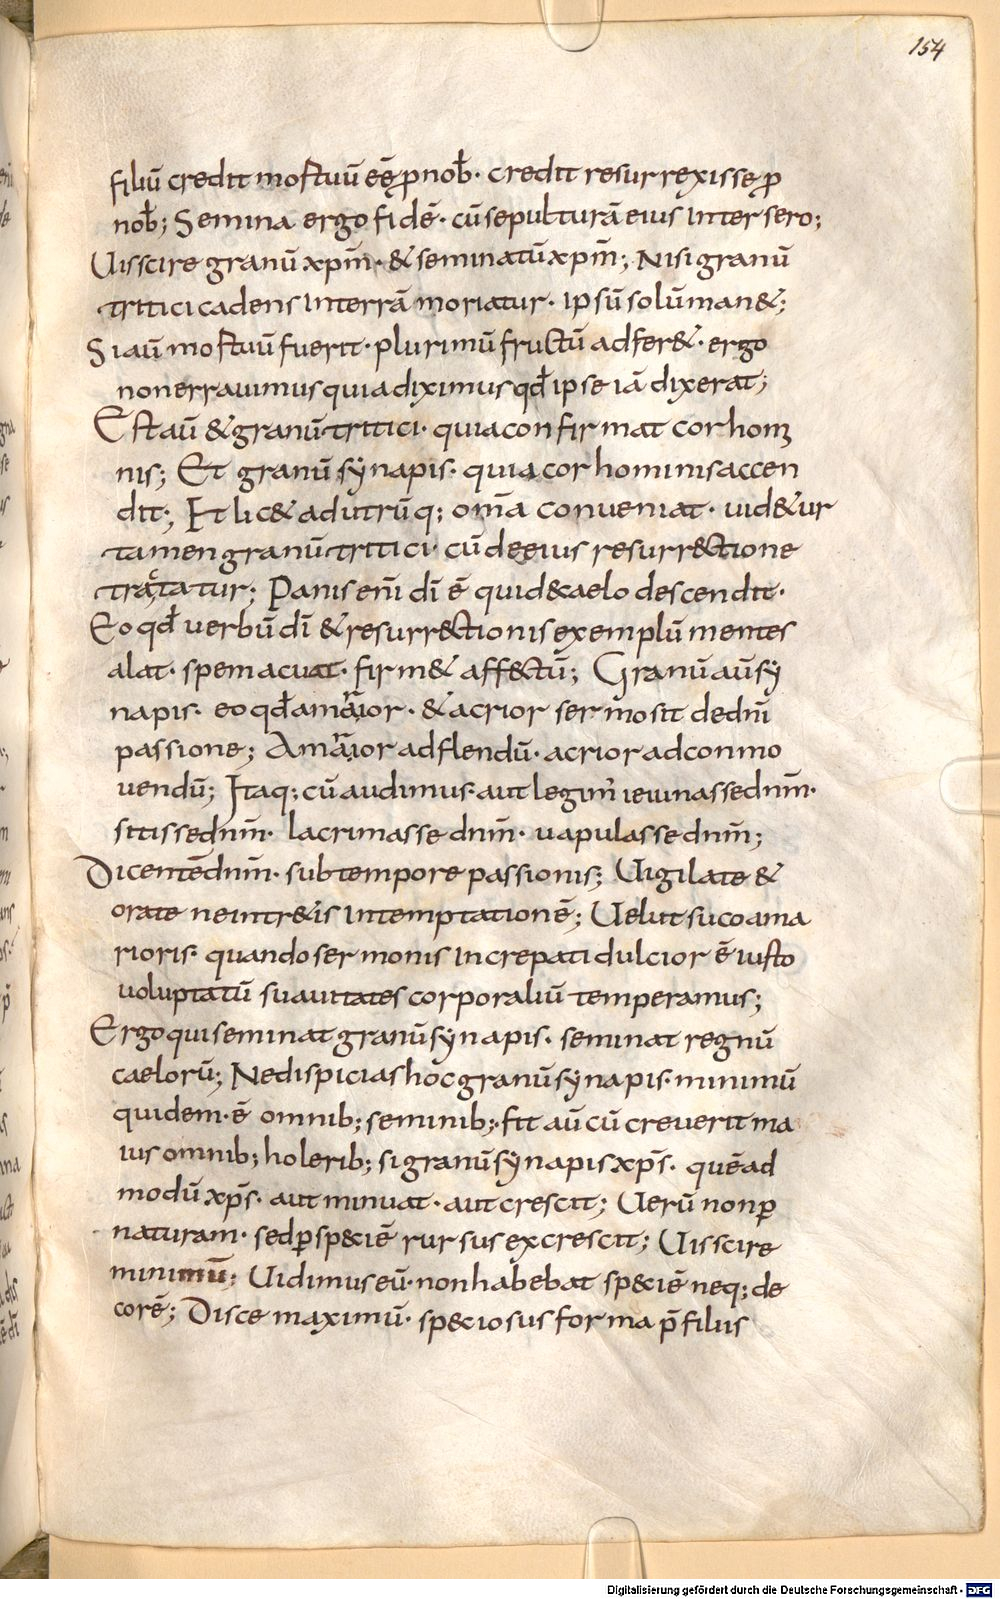 154
filiū credit mortuū eē ꝓ nob̄· credit resurrexisse ꝓ
nob̄; Semina ergo fidē· cū sepulturā eius intersero;
Uis scire granū xp̄m̄· & seminatū xp̄m̄; Nisi granū
tritici cadens in terrā moriatur· ipsū solū man&;
Si aū mortuū fuerit· plurimū fructū adfer&· ergo
non errauimus quia diximus qd̄ ipse iā dixerat;
Est aū & granū tritici· quia confirmat cor homi
nis; Et granū synapis· quia cor hominis accen
dit; Et lic& ad utrūq; om̄a conueniat· uid&ur
tamen granū tritici· cū de eius resurr&tione
tractatur; Panis eni̅ dī ē qui d& caelo descendit·
Eo qd̄ uerbū dī & resurr&tionis exemplū mentes
alat· spem acuat· firm& aff&tū; Granū aū sy
napis· eo qd̄ amarior· & acrior sermo sit de dn̄i
passione; Amarior ad flendū· acrior ad conmo
uendū; Itaq; cū audimus aut legim̄ ieiunasse dnm̄·
sitisse dnm̄· lacrimasse dnm̄· uapulasse dnm̄;
Dicentē dnm̄· sub tempore passionis; Uigilate &
orate ne intr&is in temptationē; Uelut suco ama
rioris· quando sermonis increpati dulcior ē iusto
uoluptatū suauitates corporaliū temperamus;
Ergo qui seminat granū synapis· seminat regnū
caelorū; Ne dispicias hoc granū synapis· minimū
quidem· ē omnib; seminib;· fit aū cū creuerit ma
ius omnib; holerib; si granū synapis xp̄s· quēad
modū xp̄s· aut minuat· aut crescit; Uerū non ꝑ
naturam· sed ꝑ sp&iē rursus excrescit; Uis scire
minimū; Uidimus eū· non habebat sp&iē neq; de
corē; Disce maximū· sp&iosus forma p̄ filiis
Digitalisierung gefördert durch die Deutsche Forschungsgemeinschaft - DFG